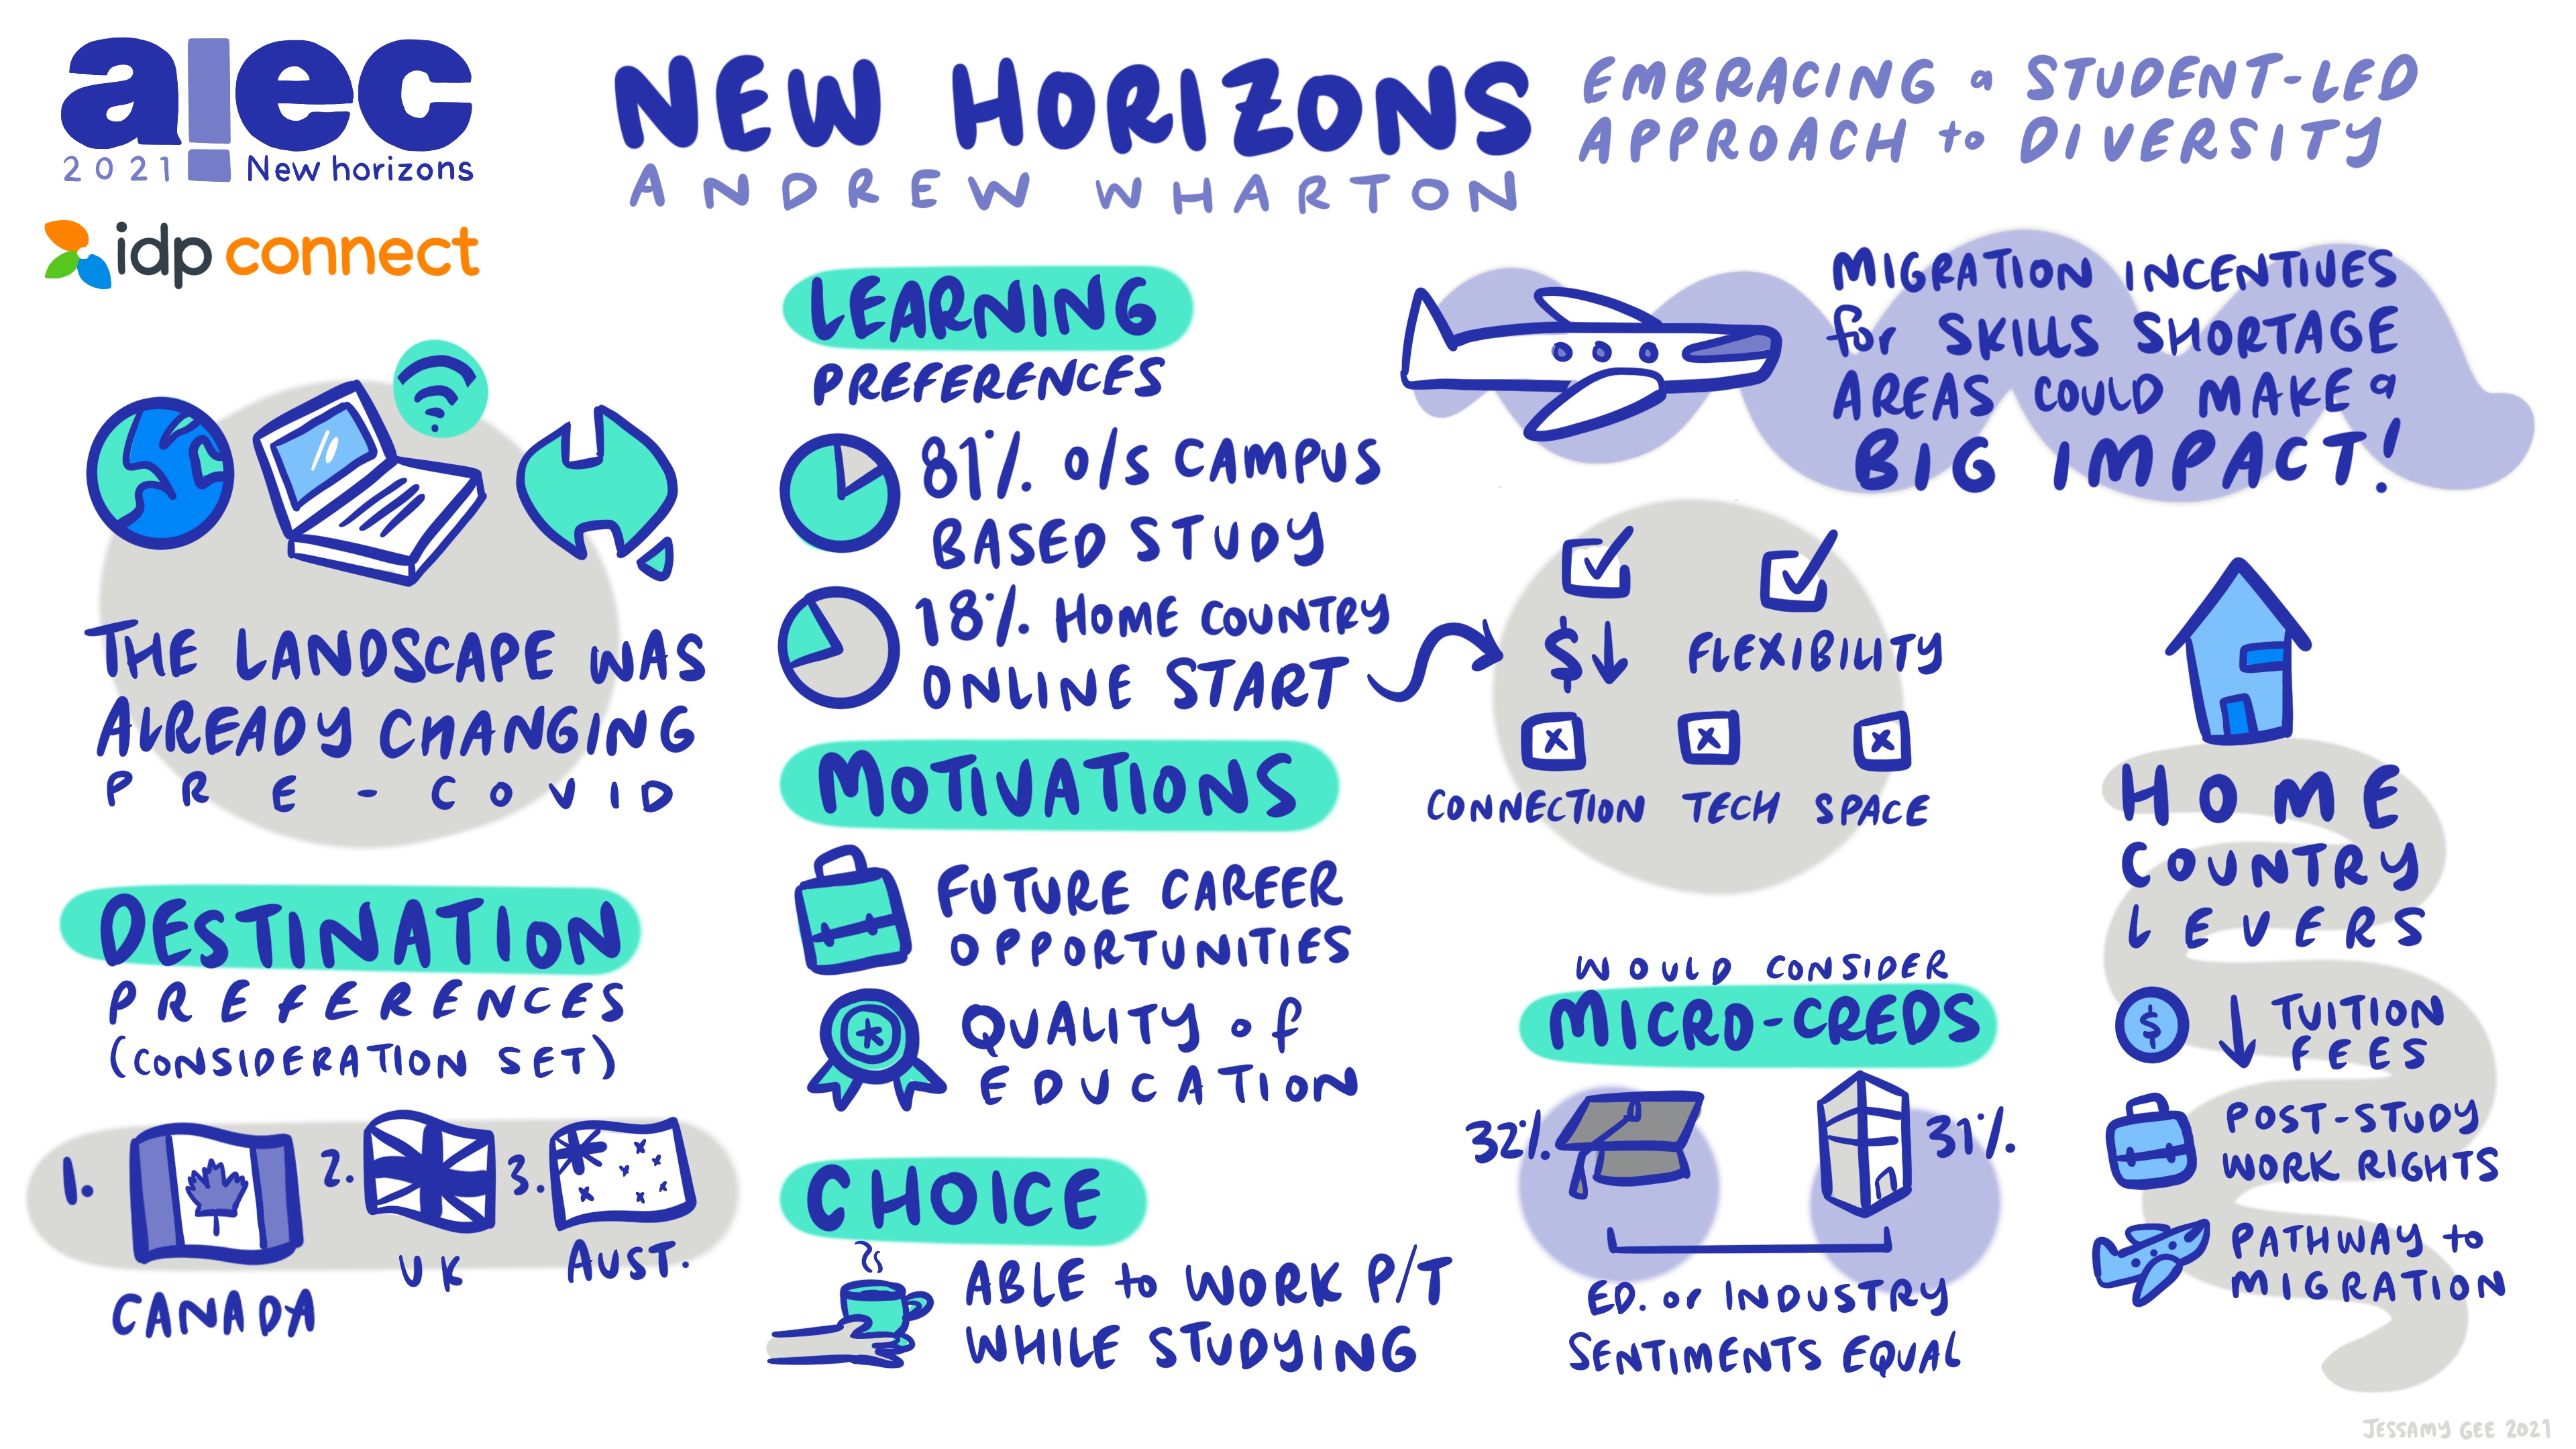 a!ec
2021 New horizons
idp connect
NEW HORIZONS
ANDREW WHARTON
EMBRACING a STUDENT-LED
APPROACH to DIVERSITY
THE LANDSCAPE WAS
ALREADY CHANGING
PRE-COVID
DESTINATION
PREFERENCES
(CONSIDERATION SET)
1.
CANADA
2.
UK
3.
AUST.
LEARNING
PREFERENCES
81% O/S CAMPUS
BASED STUDY
18% HOME COUNTRY
ONLINE START
MOTIVATIONS
FUTURE CAREER
OPPORTUNITIES
QUALITY of
EDUCATION
CHOICE
ABLE to WORK P/T
WHILE STUDYING
MIGRATION INCENTIVES
for SKILLS SHORTAGE
AREAS COULD MAKE a
BIG IMPACT!
$↓ FLEXIBILITY
CONNECTION TECH SPACE
WOULD CONSIDER
MICRO-CREDS
32% 31%
ED. or INDUSTRY
SENTIMENTS EQUAL
HOME
COUNTRY
LEVERS
$ ↓ TUITION
FEES
POST-STUDY
WORK RIGHTS
PATHWAY to
MIGRATION
JESSAMY GEE 2021